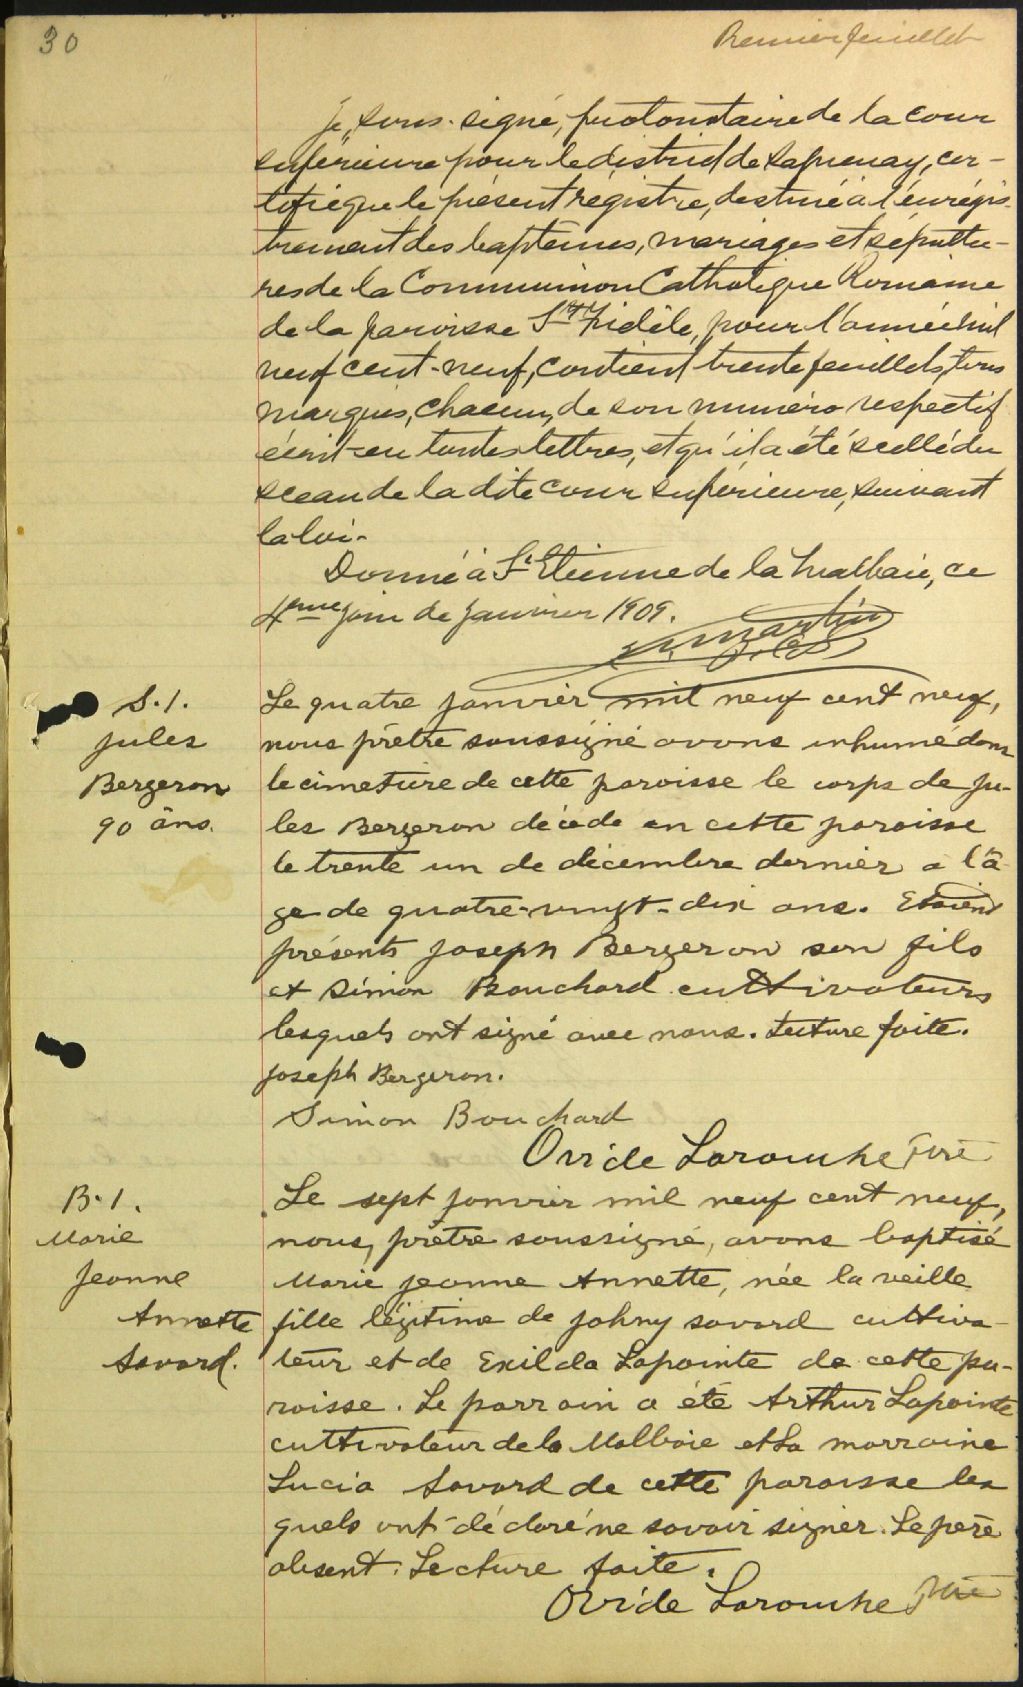 30
Premier feuillet
Je, sous-signé, protonotaire de la cour
supérieure pour le district de Saguenay, cer-
tifie que le présent registre, destiné à l'enrégis-
trement des baptêmes, mariages et sépultu-
res de la Communion Catholique Romaine
de la paroisse St Fidèle, pour l'année mil
neuf cent-neuf, contient trente feuillets, tous
marqués, chacun, de son numéro respectif
écrit en toutes lettres, et qu'il a été scellé du
sceau de la dite cour supérieure, suivant
la loi.
Donné à St Etienne de la Malbaie, ce
4ème jour de Janvier 1909.
Martin
S.1.
Jules
Bergeron
90 ans.
Le quatre janvier mil neuf cent neuf,
nous prêtre soussigné avons inhumé dans
le cimetière de cette paroisse le corps de Ju-
les Bergeron décédé en cette paroisse
le trente un de décembre dernier a l'â-
ge de quatre-vingt-dix ans. Etaient
présents Joseph Bergeron son fils
et Simon Bouchard cultivateurs
lesquels ont signé avec nous. Lecture faite.
Joseph Bergeron.
Simon Bouchard
Ovide Larouche Ptre
B.1.
Marie
Jeanne
Annette
Savard.
Le sept janvier mil neuf cent neuf,
nous, prêtre soussigné, avons baptisé
Marie Jeanne Annette, née la veille
fille légitime de Johny Savard cultiva-
teur et de Exilda Lapointe de cette pa-
roisse. Le parrain a été Arthur Lapointe
cultivateur de la Malbaie et la marraine
Lucia Savard de cette paroisse les
quels ont déclaré ne savoir signer. Le père
absent. Lecture faite.
Ovide Larouche Ptre